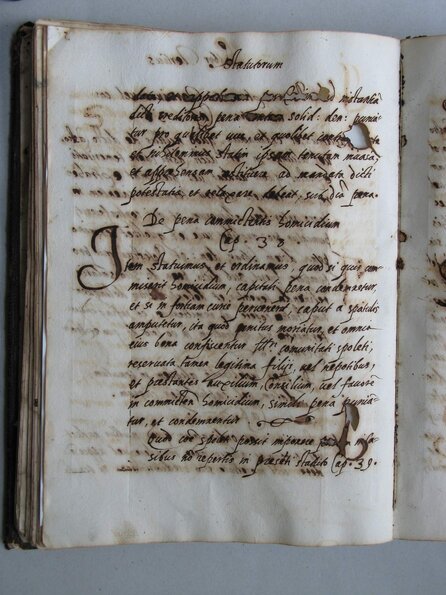 Statutorum
dicti creditoris, pena solid: den: punia
tur pro quolibet
et nihilominus statim ipsam tenutam
et apprehensam restituere ad mandata dicti
potestatis et relaxare debeat, sub dicta pena.
De pena committentis homicidium
Cap 38
Item statuimus et ordinamus, quod si quis com
miserit homicidium, capitali pena condemnetur,
et si in fortiam curie pervenerit, caput a spatulis
amputetur, ita quod penitus moriatur, et omnia
eius bona confiscentur comunitati spoleti,
reservata tamen legitima filijs, vel nepotibus,
et prestantes auxilium, consilium, vel favorem
in committendo homicidium, simili pena punia
tur, et condemnentur
Quod possit imponere
sibus non repertis in presenti statuto Cap. 39.